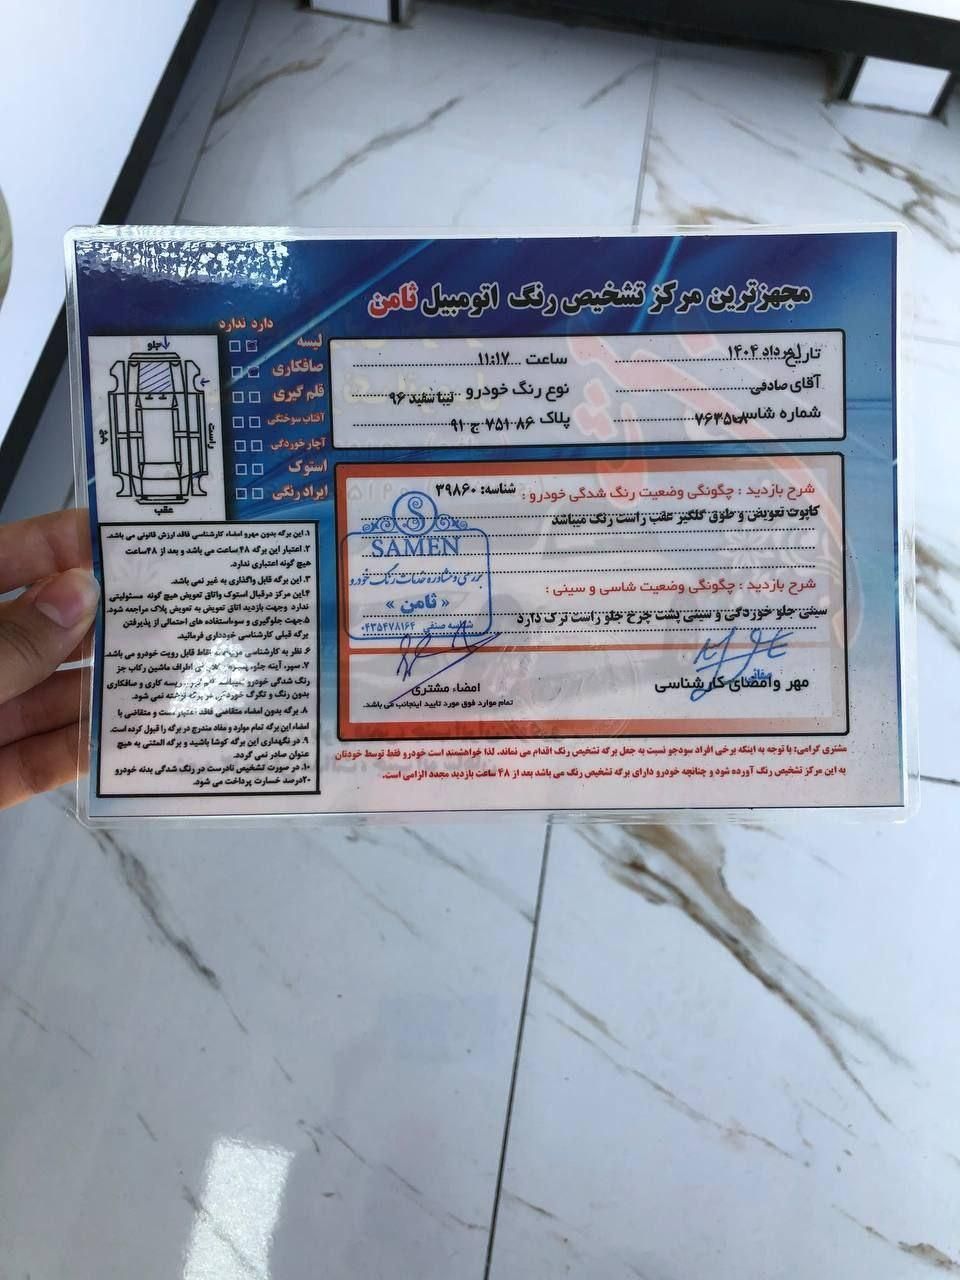 مجهزترین مرکز تشخیص رنگ اتومبیل ثامن
دارد ندارد
لیسه
صافکاری
قلم گیری
آفتاب سوختگی
آچار خوردگی
استوک
ایراد رنگی
جلو
راست
چپ
عقب
تاریخ خرداد ۱۴۰۴ ساعت ۱۱:۱۷
آقای صادقی نوع رنگ خودرو تیبا سفید ۹۶
شماره شاسی پلاک ۸۶ ۷۵۱ ج ۹۱
شرح بازدید : چگونگی وضعیت رنگ شدگی خودرو : شناسه: ۳۹۸۶۰
کاپوت تعویض و طوق گلگیر عقب راست رنگ میباشد
شرح بازدید : چگونگی وضعیت شاسی و سینی :
سینی جلو خوردگی و سینی پشت چرخ جلو راست ترک دارد
SAMEN
بررسی و مشاوره خدمات رنگ خودرو
« ثامن »
شناسه صنفی ۰۴۳۵۴۷۸۱۶۴
مهر وامضای کارشناسی
امضاء مشتری
تمام موارد فوق مورد تایید اینجانب می باشد.
۱. این برگه بدون مهرو امضاء کارشناسی فاقد ارزش قانونی می باشد.
۲. اعتبار این برگه ۴۸ ساعت می باشد و بعد از ۴۸ساعت
هیچ گونه اعتباری ندارد.
۳. این برگه قابل واگذاری به غیر نمی باشد.
۴.این مرکز درقبال استوک واتاق تعویض هیچ گونه مسئولیتی
ندارد وجهت بازدید اتاق تعویض به تعویض پلاک مراجعه شود.
۵.جهت جلوگیری و سوءاستفاده های احتمالی از پذیرفتن
برگه قبلی کارشناسی خودداری فرمائید.
۶. نظر به کارشناسی نقاط قابل رویت خودرو می باشد.
۷. سپر، آینه جلو، اطراف ماشین رکاب جز
رنگ شدگی خودرو لیسه کاری و صافکاری
بدون رنگ و تگرگ خوردگی در برگه نوشته نمی شود.
۸. برگه بدون امضاء متقاضی فاقد اعتبار است و متقاضی با
امضاء این برگه تمام موارد و مفاد مندرج در برگه را قبول کرده است.
۹. در نگهداری این برگه کوشا باشید و برگه المثنی به هیچ
عنوان صادر نمی گردد.
۱۰. در صورت تشخیص نادرست در رنگ شدگی بدنه خودرو
۲۰درصد خسارت پرداخت می شود.
مشتری گرامی: با توجه به اینکه برخی افراد سودجو نسبت به جعل برگه تشخیص رنگ اقدام می نماند. لذا خواهشمند است خودرو فقط توسط خودتان
به این مرکز تشخیص رنگ آورده شود و چنانچه خودرو دارای برگه تشخیص رنگ می باشد بعد از ۴۸ ساعت بازدید مجدد الزامی است.